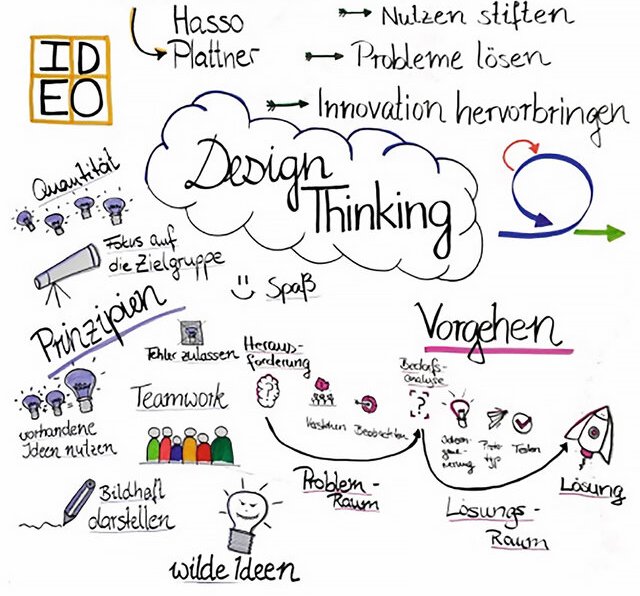 ID
EO
Hasso
Plattner
Nutzen stiften
Probleme lösen
Innovation hervorbringen
Design
Thinking
Quantität
Fokus auf
die Zielgruppe
Spaß
Prinzipien
Fehler zulassen
vorhandene
Ideen nutzen
Teamwork
Bildhaft
darstellen
wilde Ideen
Vorgehen
Heraus-
forderung
Verstehen
Beobachten
Bedarfs-
analyse
?
Ideen-
gene-
rierung
Proto-
typ
Testen
Lösung
Problem-
Raum
Lösungs-
Raum